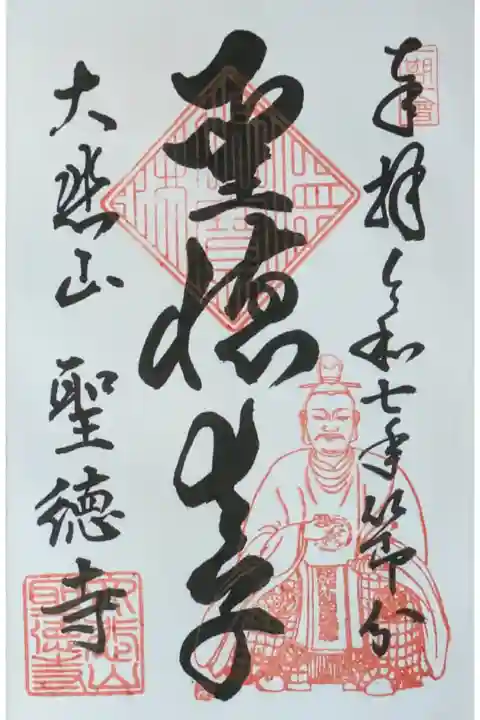 一期一會
奉拝 令和七年節分
聖徳太子
大悲山 聖徳寺